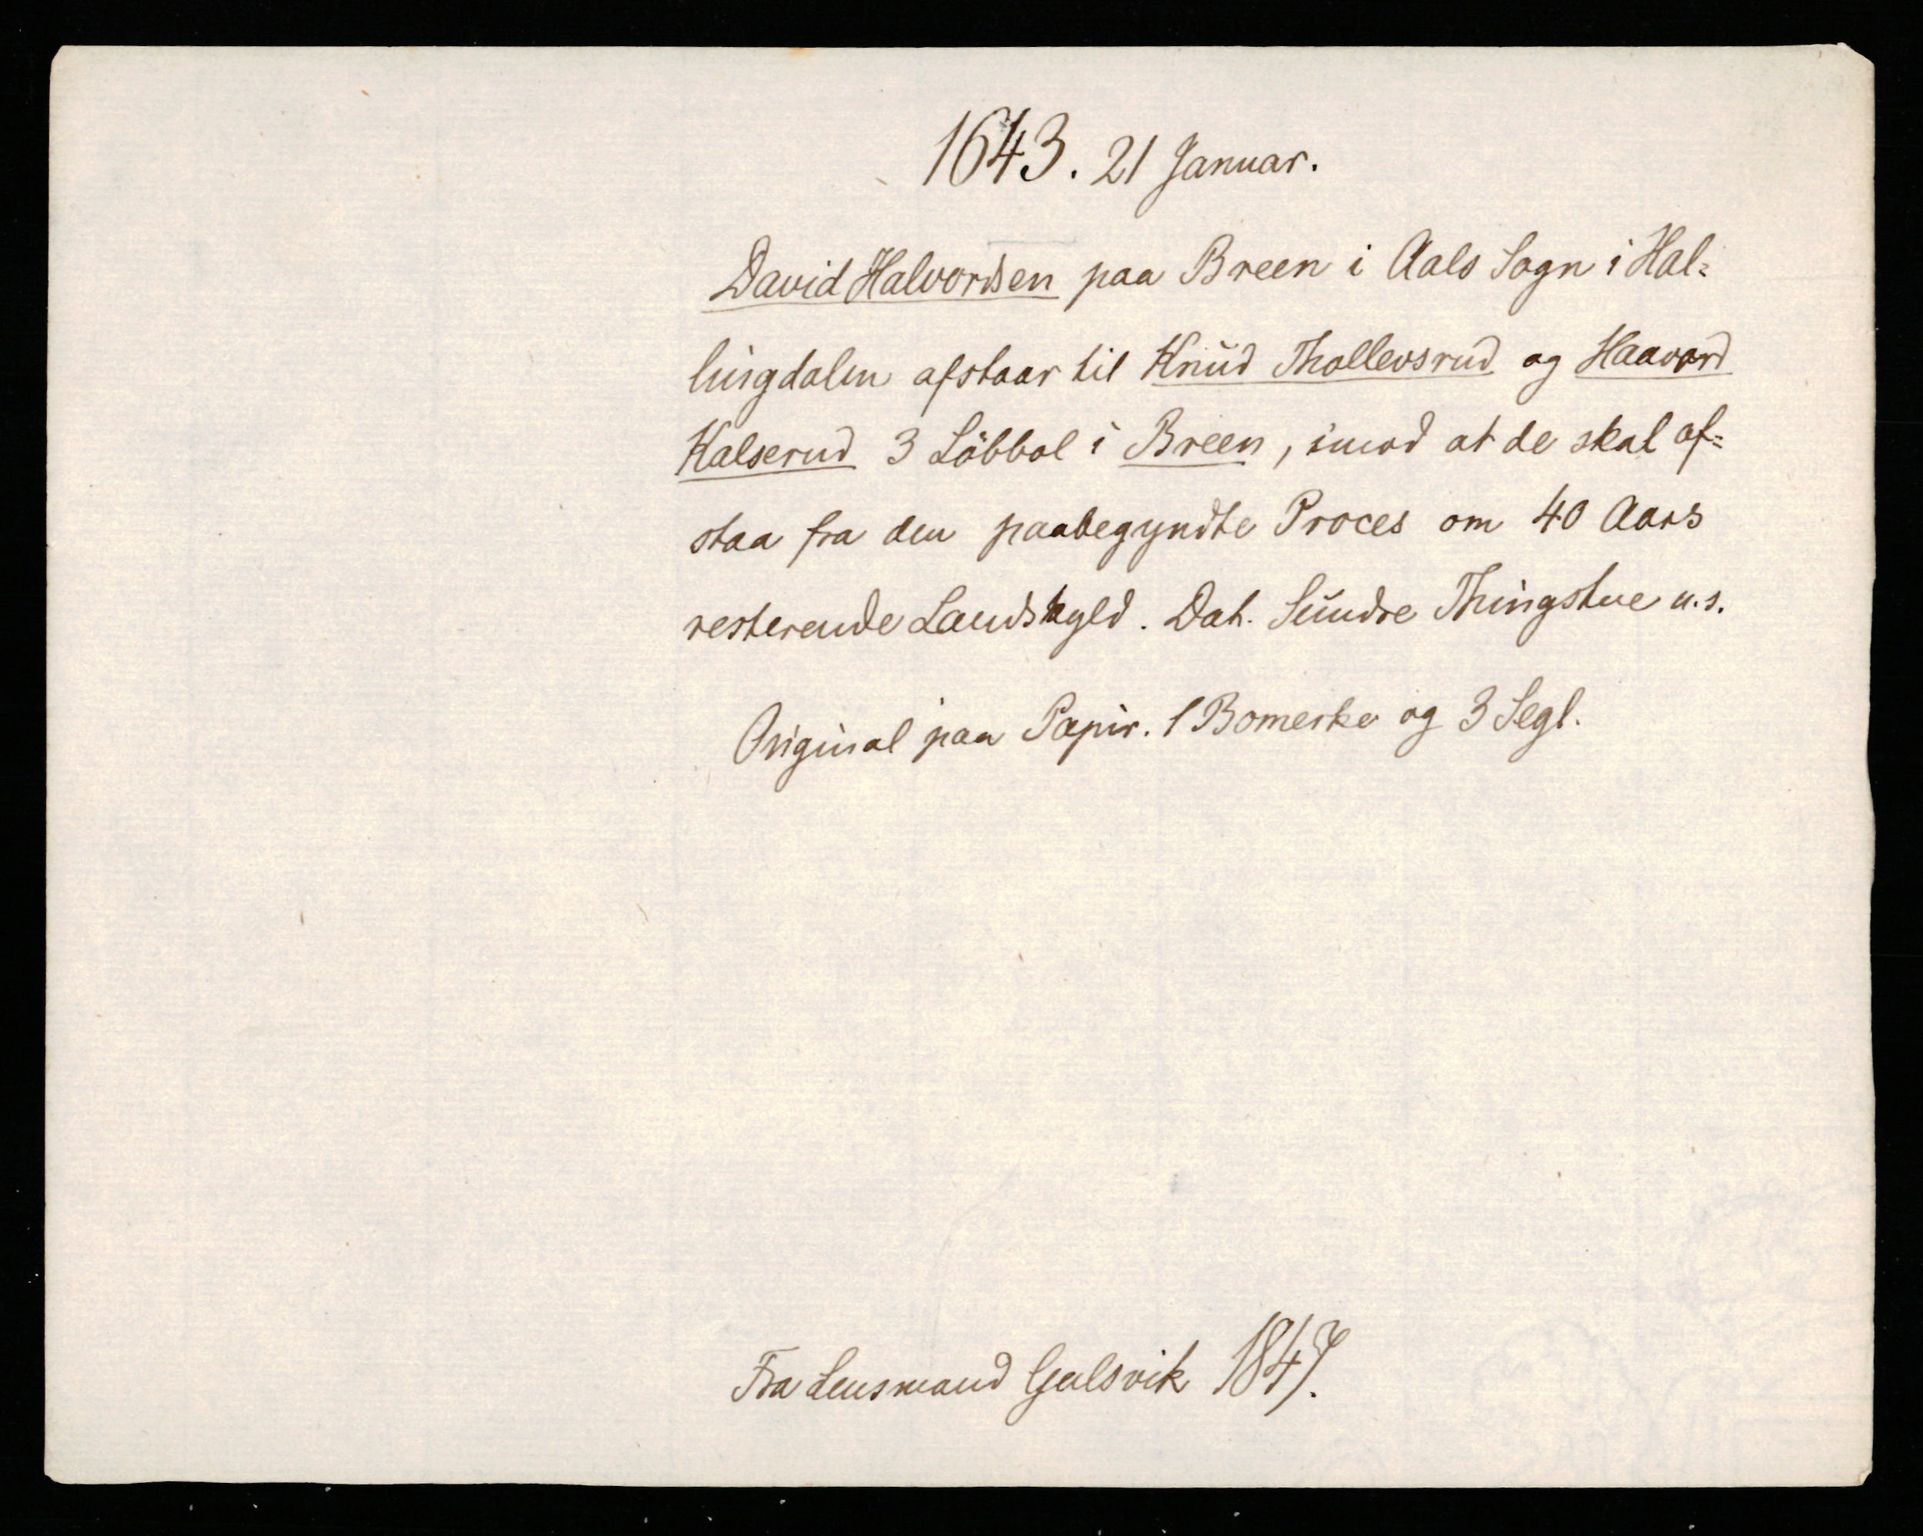 1643. 21 Januar.
David Halvordsen paa Breen i Aals Sogn i Hal=
lingdalen afstaar til Knud Thollevsrud og Haavard
Halserud 3 Löbbol i Breen, imod at de skal af=
staa fra den paabegyndte Proces om 40 Aars
resterende Landskyld. Dat. Sundre Thingstue u.s.
Original paa Papir. 1 Bomerke og 3 Segl.
Fra Lensmand Gulsvik 1847.